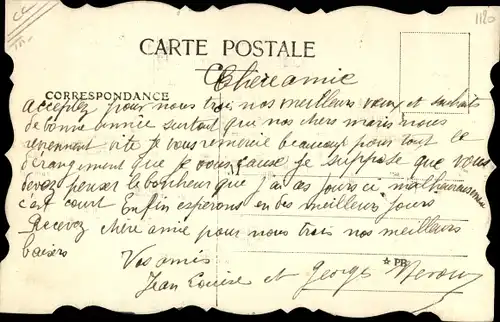 1120
CARTE POSTALE
Chère amie
CORRESPONDANCE
acceptez pour nous trois nos meilleurs vœux et souhaits
de bonne année surtout que nos chers maris nous
reviennent vite je vous remercie beaucoup pour tout le
dérangement que je vous cause je suppose que vous
devez penser le bonheur que j'ai ces jours ci malheureusement
c'est court Enfin esperons en des meilleurs jours
Recevez chère amie pour nous trois nos meilleurs
baisers
Vos amis
★ PB
Jean Louise et Georges